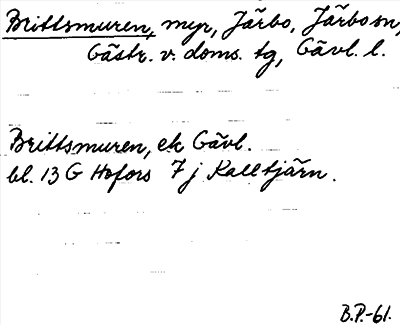 Brittsmuren, myr, Järbo, Järbo sn,
Gästr. v. doms. tg, Gävl. l.
Brittsmuren, ek Gävl.
bl. 13 G Hofors 7 j Kalltjärn.
B.P.-61.